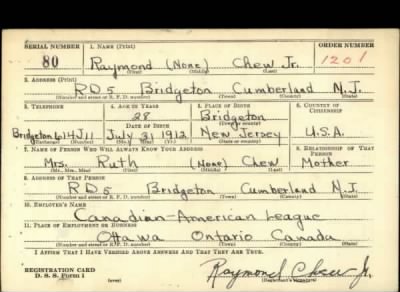 SERIAL NUMBER 1. NAME (Print) ORDER NUMBER
80 Raymond (None) Chew Jr. 1201
(First) (Middle) (Last)
2. ADDRESS (Print)
RD5 Bridgeton Cumberland N.J.
(Number and street or R. F. D. number) (Town) (County) (State)
3. TELEPHONE 4. AGE IN YEARS 5. PLACE OF BIRTH 6. COUNTRY OF CITIZENSHIP
28 Bridgeton
DATE OF BIRTH (Town or county)
Bridgeton 614J11 July 31 1912 New Jersey U.S.A.
(Exchange) (Number) (Mo.) (Day) (Yr.) (State or country)
7. NAME OF PERSON WHO WILL ALWAYS KNOW YOUR ADDRESS 8. RELATIONSHIP OF THAT PERSON
Mrs. Ruth (None) Chew Mother
(Mr., Mrs., Miss) (First) (Middle) (Last)
9. ADDRESS OF THAT PERSON
RD5 Bridgeton Cumberland N.J.
(Number and street or R. F. D. number) (Town) (County) (State)
10. EMPLOYER'S NAME
Canadian-American League
11. PLACE OF EMPLOYMENT OR BUSINESS
Ottawa Ontario Canada
(Number and street or R. F. D. number) (Town) (County) (State)
I AFFIRM THAT I HAVE VERIFIED ABOVE ANSWERS AND THAT THEY ARE TRUE.
REGISTRATION CARD
D. S. S. Form 1 Raymond Chew Jr.
(Registrant's signature)